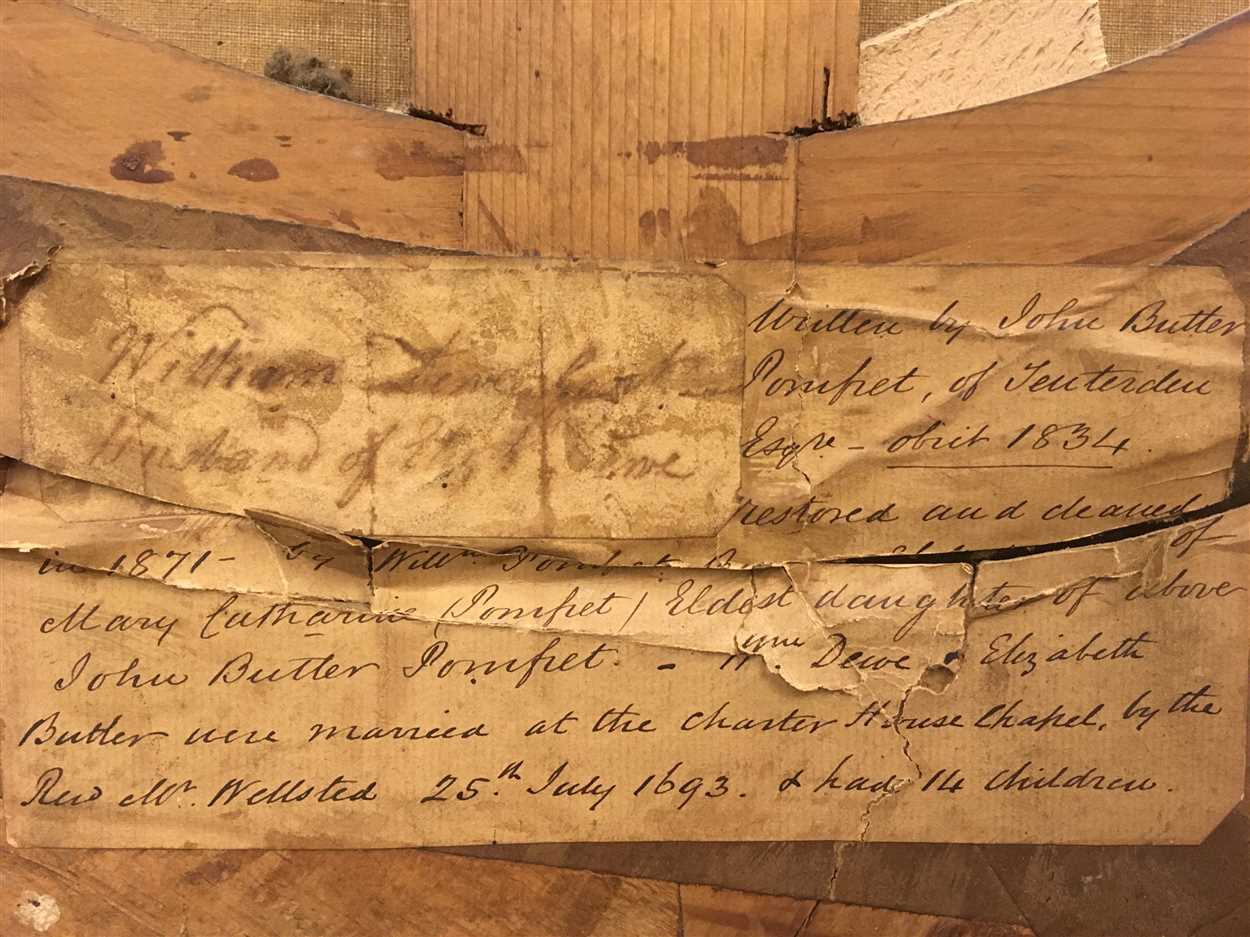 William Dewe
Husband of Elizth. Dewe
Written by John Butler
Pomfret, of Tenterden
Esqre - obiit 1834.
restored and cleaned
in 1871 - by Willm. Pomfret of
Mary Catharine (Pomfret) Eldest daughter of above
John Butler Pomfret. - Wm. Dewe & Elizabeth
Butler were married at the Charter House Chapel, by the
Rev Mr. Wellsted 25.th July 1693. & had 14 children.